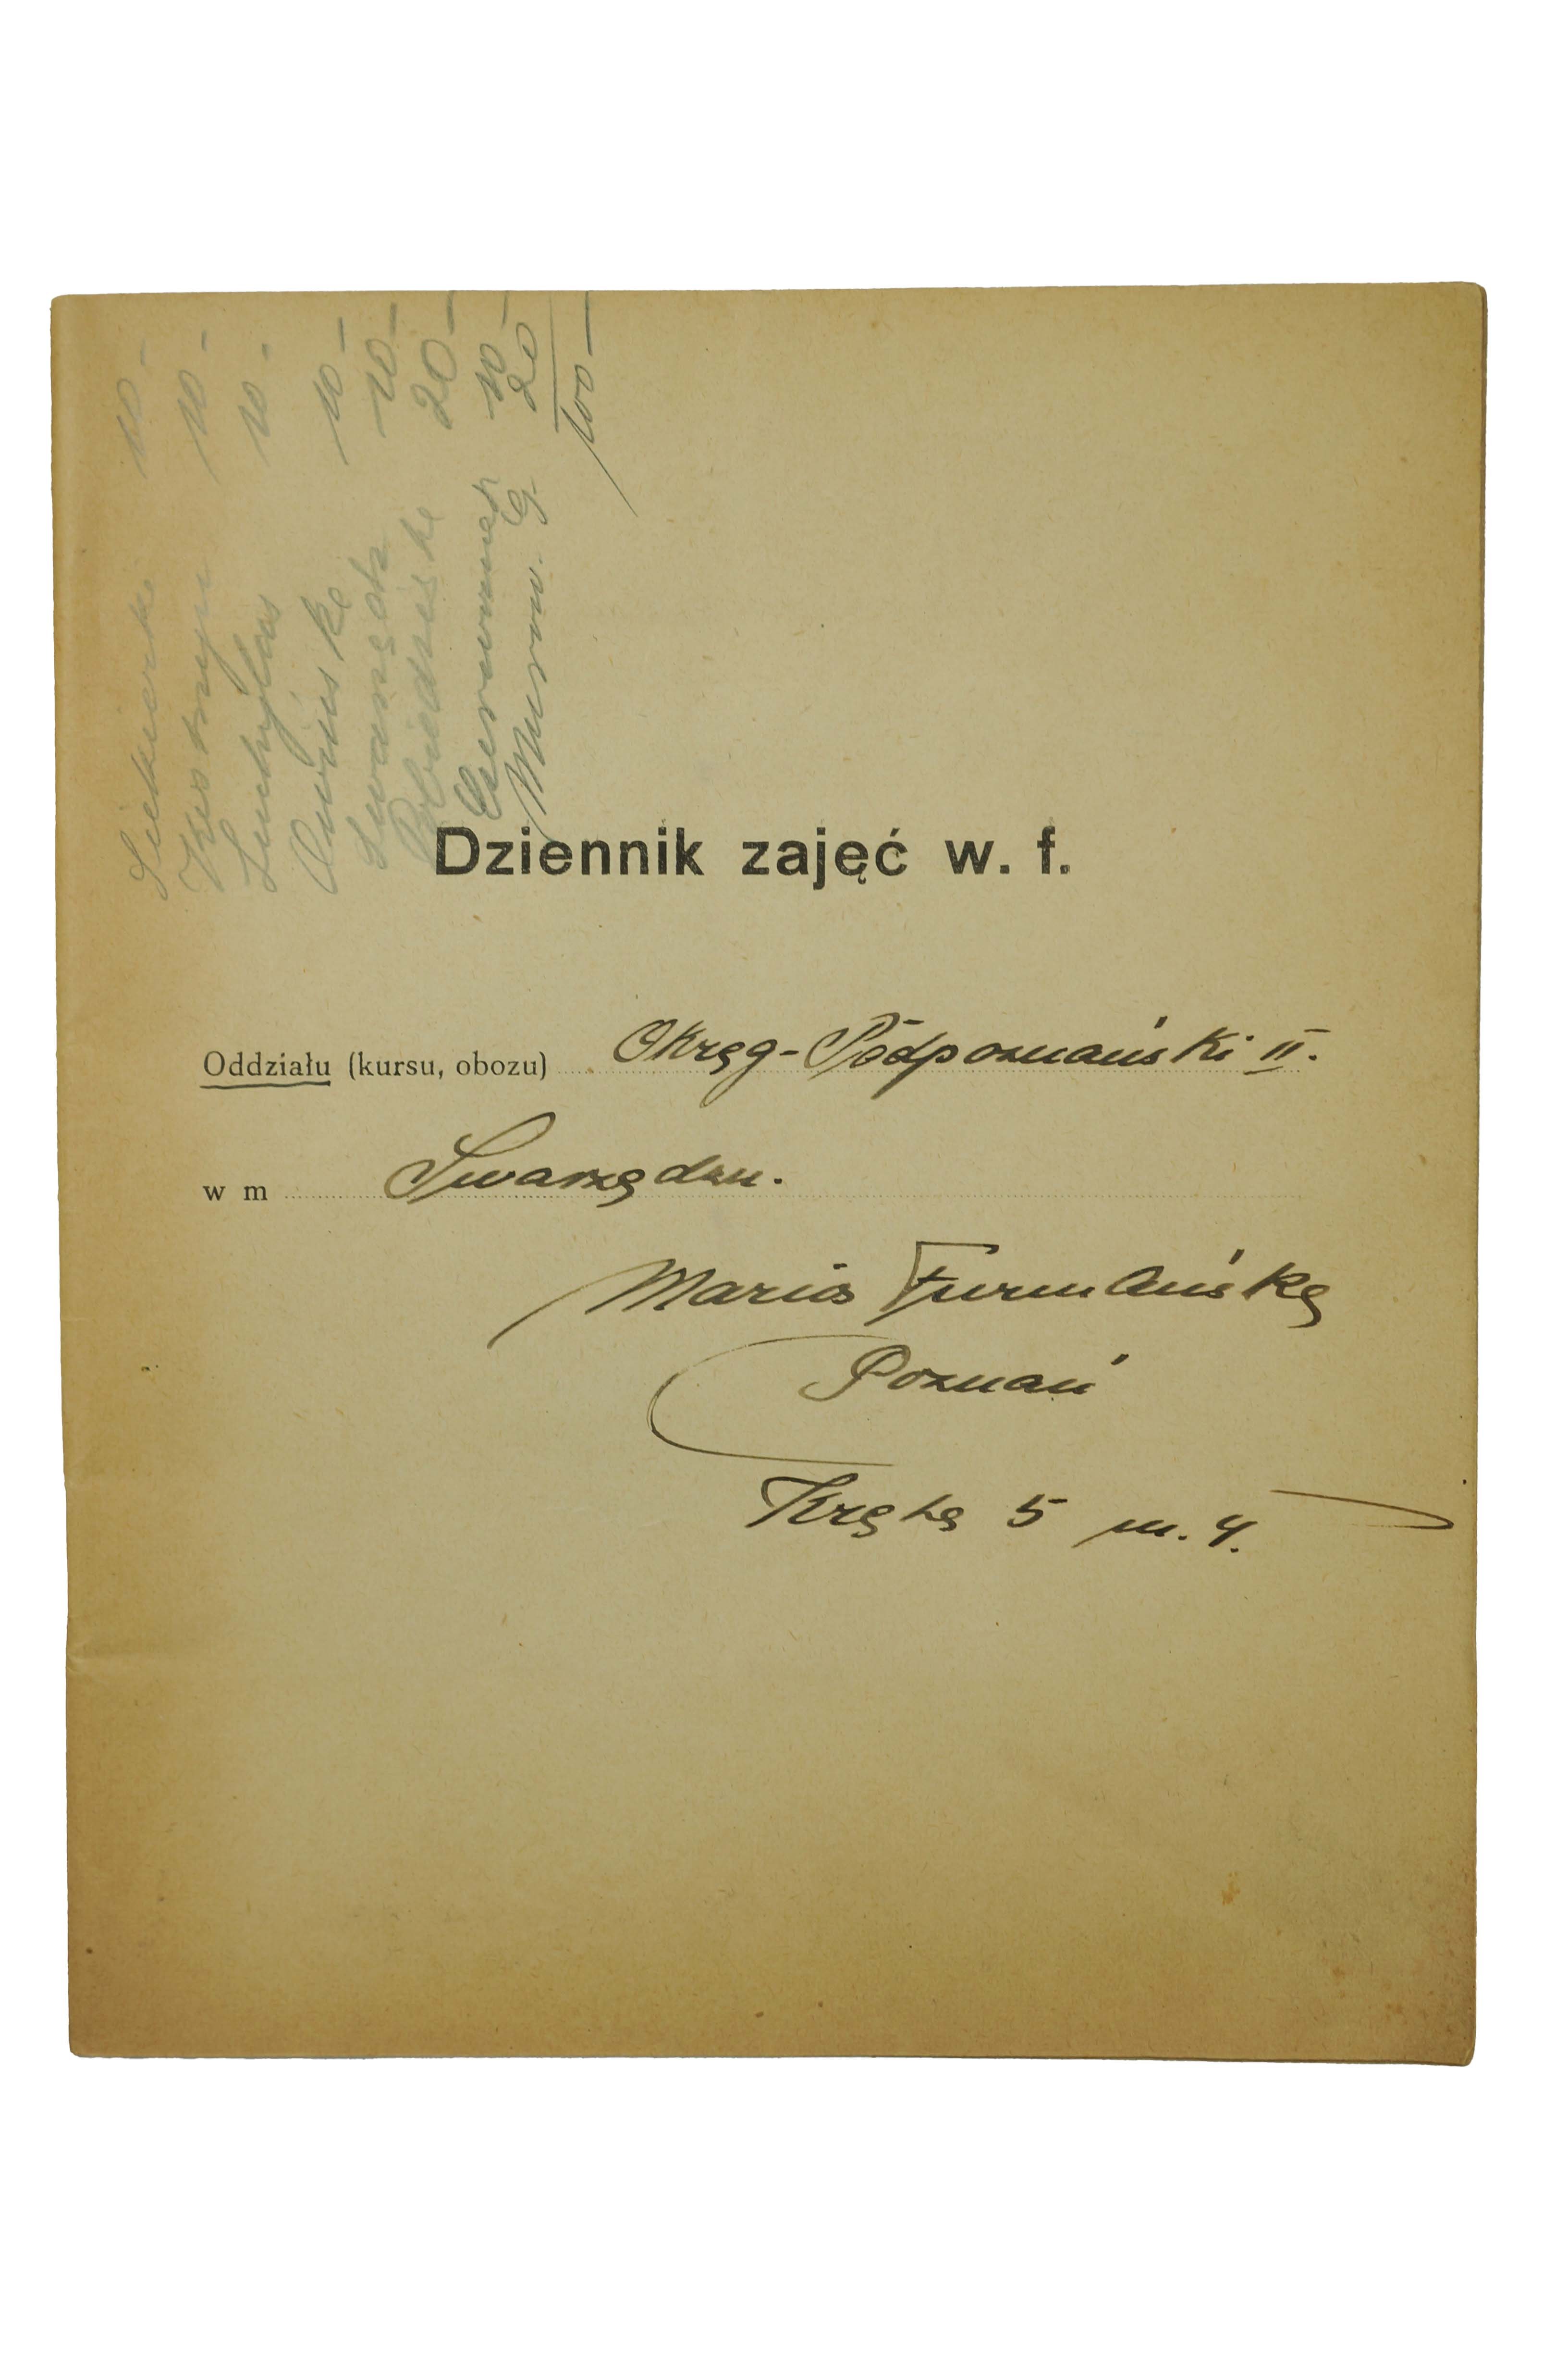 Siekierki 10 -
Kostrzyn 10 -
10 -
Owińska 10 -
Swarzędz 10 -
Pobiedziska 20 -
Czerwonak 10 -
Murow. G. 20 -
100 -
Dziennik zajęć w. f.
Oddziału (kursu, obozu) Okręg-Podpoznański II.
w m Swarzędzu.
Maria Furmańska
Poznań
Kręta 5 m. 4.